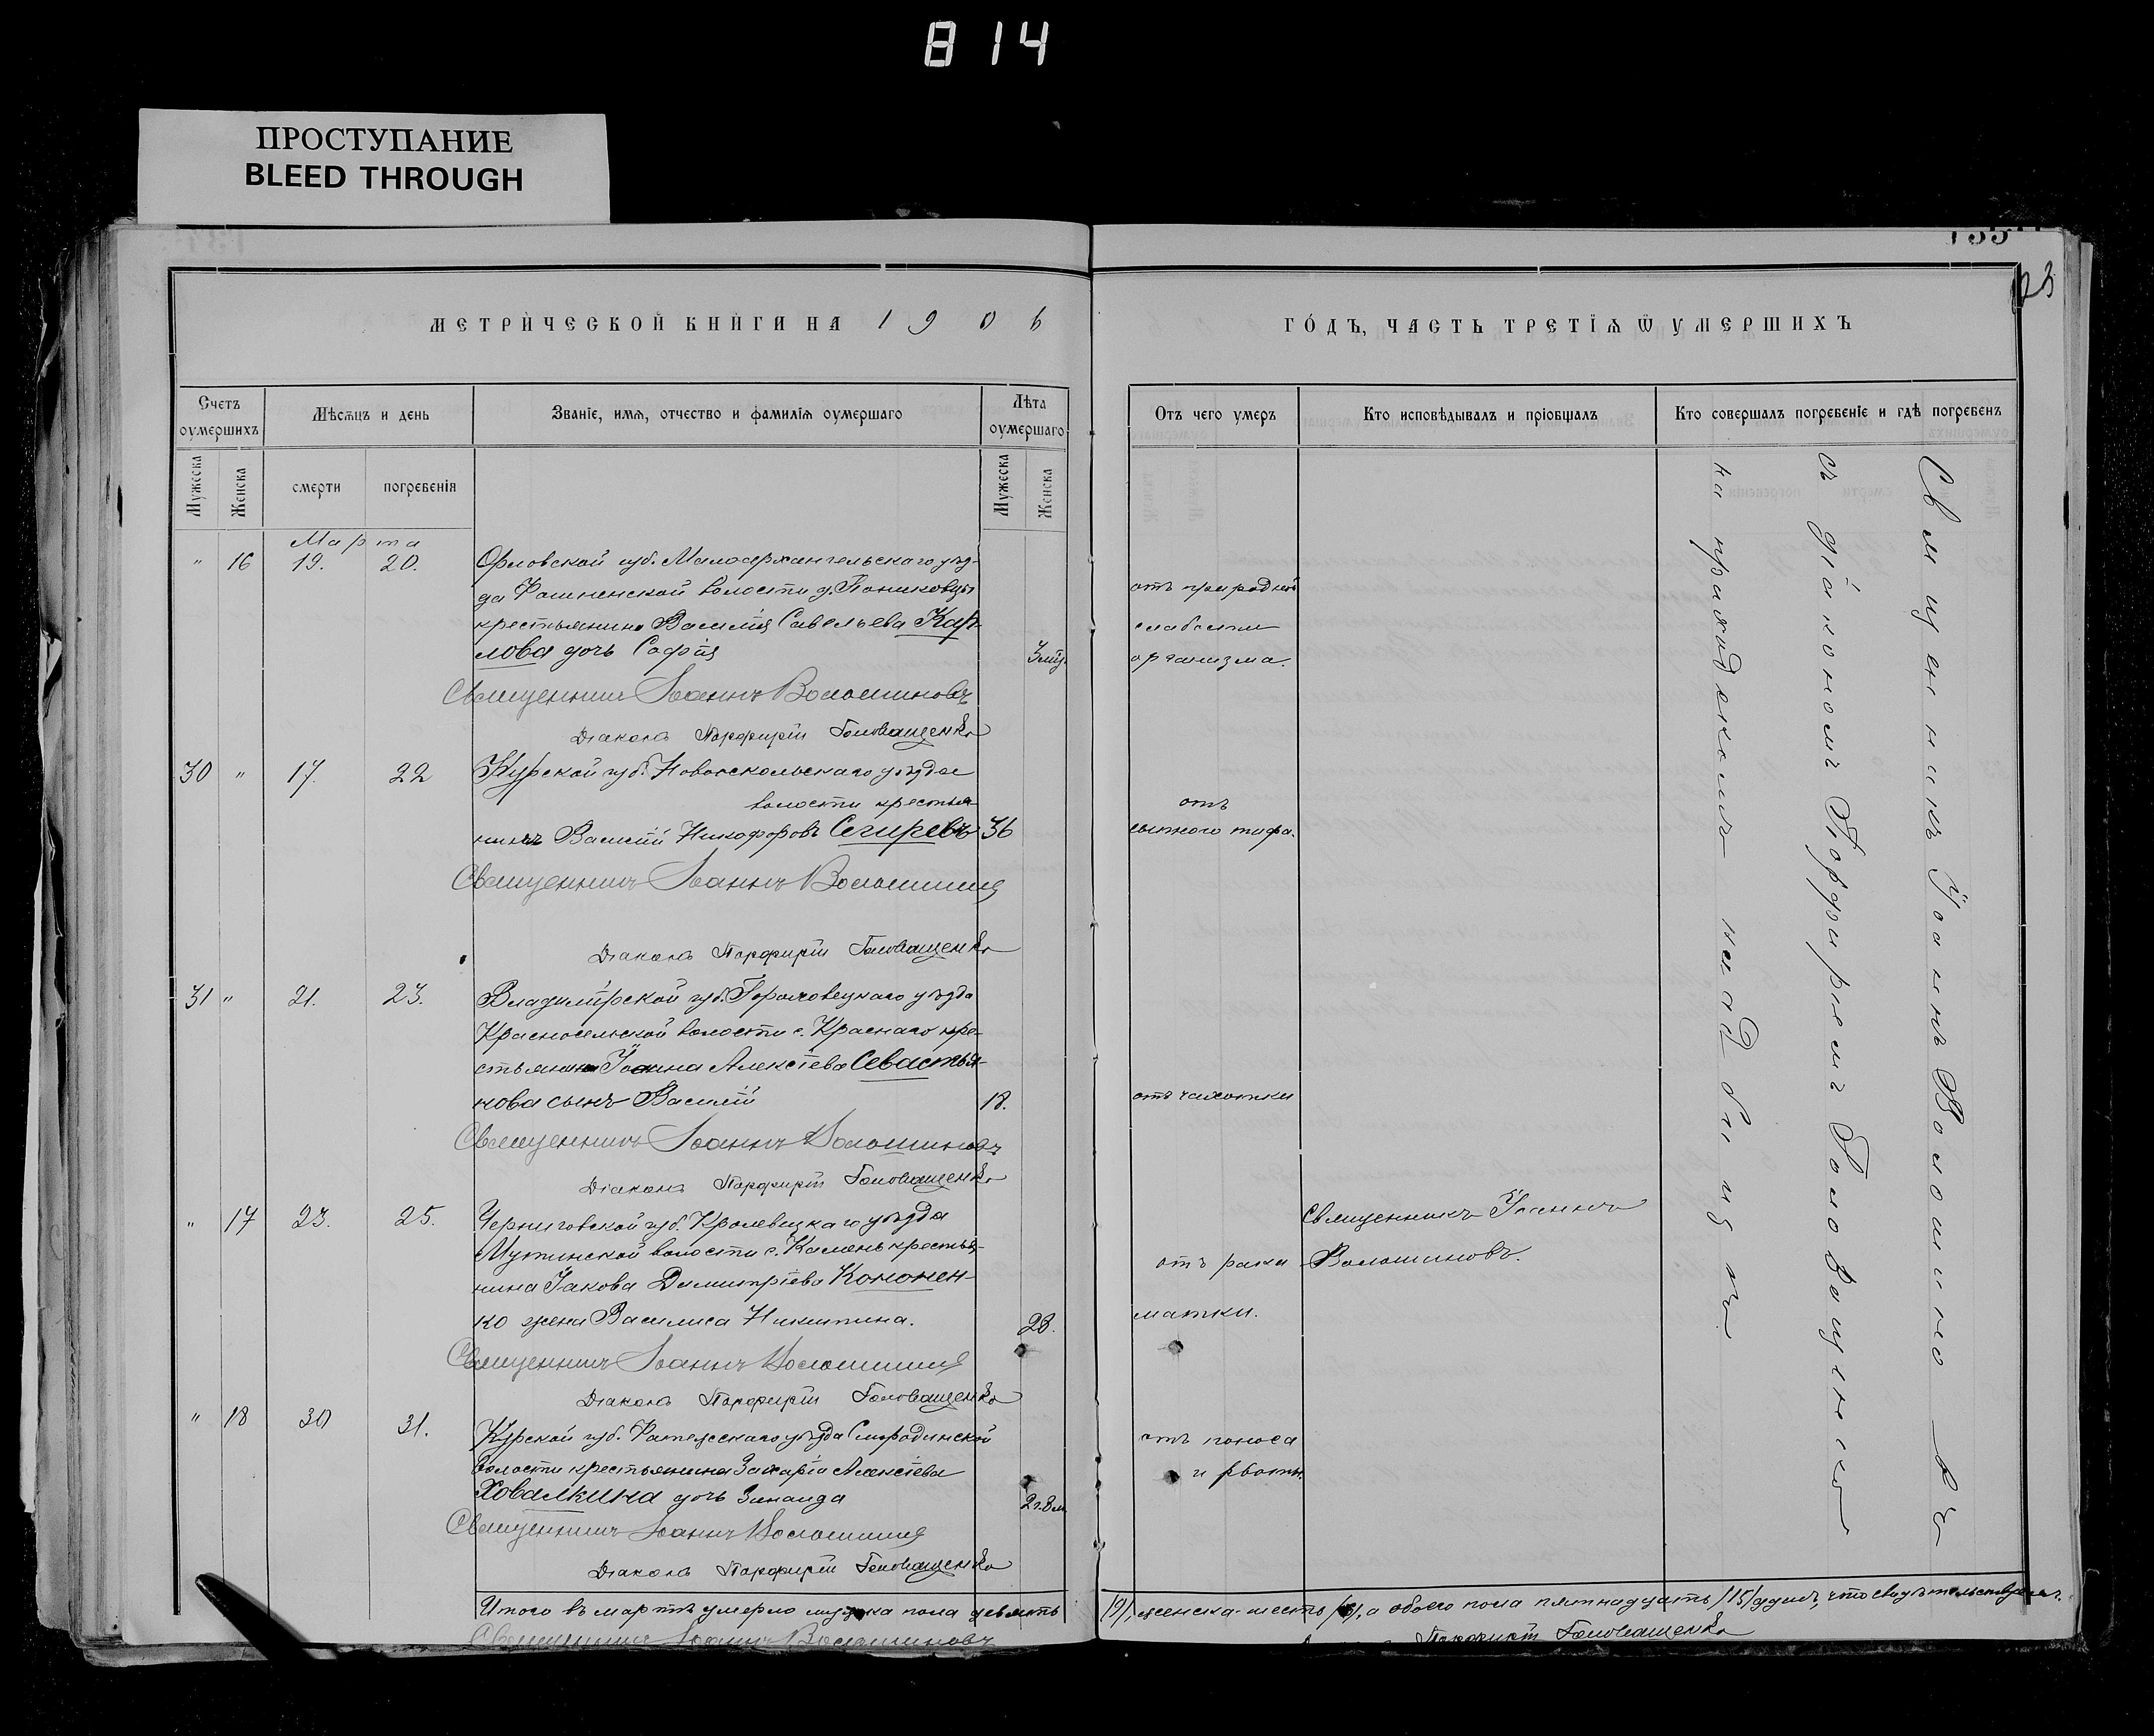 814
ПРОСТУПАНИЕ
BLEED THROUGH
МЕТРИЧЕСКОЙ КНИГИ НА 1906
ГОДЪ, ЧАСТЬ ТРЕТІЯ Ѿ УМЕРШИХЪ
Счетъ оумершихъ
Мѣсяцъ и день
Званіе, имя, отчество и фамилія оумершаго
Лѣта оумершаго
Отъ чего умеръ
Кто исповѣдывалъ и пріобщалъ
Кто совершалъ погребеніе и гдѣ погребенъ
Мужеска
Женска
смерти
погребенія
Мужеска
Женска
Марта
" 16 19. 20. Орловской губ. Малоархангельскаго уѣз-
да волости д.
крестьянина Василія Савельева Кар-
лова дочь Софія
отъ природной
слабости
организма.
Священникъ Іоаннъ Волошиновъ
Діаконъ Порфирій Головащенко
30 " 17. 22 Курской губ. Новооскольскаго уѣзда
волости крестья-
нинъ Василій Никифоровъ Сегиревъ 36
отъ
сыпного тифа.
Священникъ Іоаннъ Волошиновъ
Діаконъ Порфирій Головащенко
31 " 21. 23. Владимірской губ. Гороховецкаго уѣзда
Красносельской волости с. Краснаго кре-
стьянина Іоанна Алексіева Севастья-
нова сынъ Василій 18.
отъ чахотки
Священникъ Іоаннъ Волошиновъ
Діаконъ Порфирій Головащенко
" 17 23. 25. Черниговской губ. Кролевецкаго уѣзда
Мутинской волости с. Камень крестья-
нина Іакова Димитріева Кононен-
ко жена Василиса Никитина. 28.
отъ рака
матки.
Священникъ Іоаннъ
Волошиновъ.
Священникъ Іоаннъ Волошиновъ
Діаконъ Порфирій Головащенко
" 18 30 31. Курской губ. Фатежскаго уѣзда Смородинской
волости крестьянина Захарія Алексіева
Ховалкина дочь Зинаида 2г.8м.
отъ поноса
и рвоты.
Священникъ Іоаннъ Волошиновъ
Діаконъ Порфирій Головащенко
Священникъ Іоаннъ Волошиновъ
съ діакономъ Порфиріемъ Головащенко
на приходскомъ кладбищѣ
Итого въ мартѣ умерло мужска пола девять
(9), женска-шесть (6), а обоего пола пятнадцать (15) душъ, что свидѣтельствуемъ.
Священникъ Іоаннъ Волошиновъ
Порфирій Головащенко